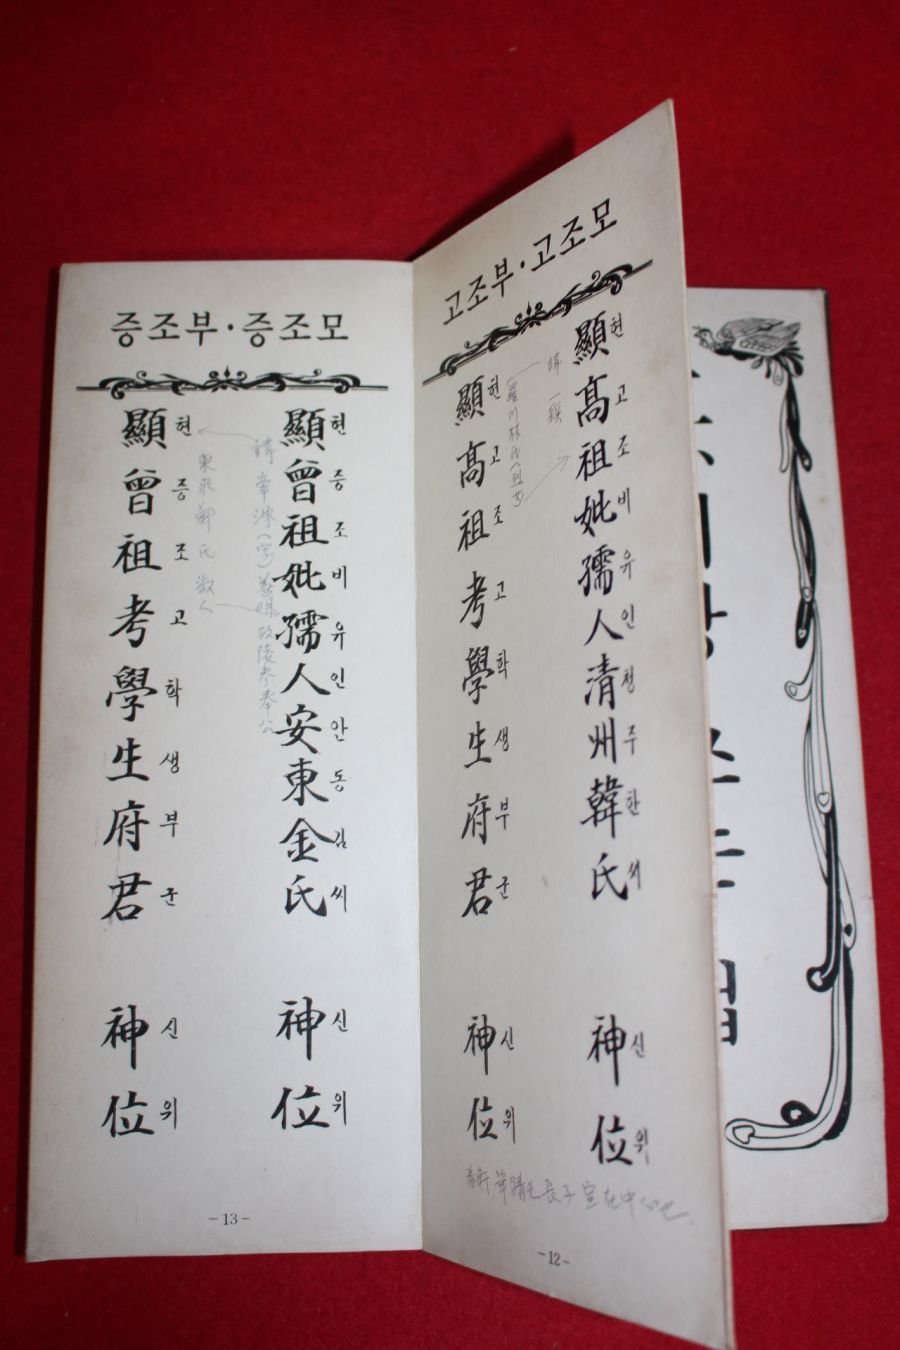 증조부·증조모
顯曾祖考學生府君 神位
현증조고학생부군 신위
顯曾祖妣孺人安東金氏 神位
현증조비유인안동김씨 신위
東萊鄭氏 淑人
諱
-13-
고조부·고조모
顯高祖考學生府君 神位
현고조고학생부군 신위
顯高祖妣孺人清州韓氏 神位
현고조비유인청주한씨 신위
諱
長子
-12-